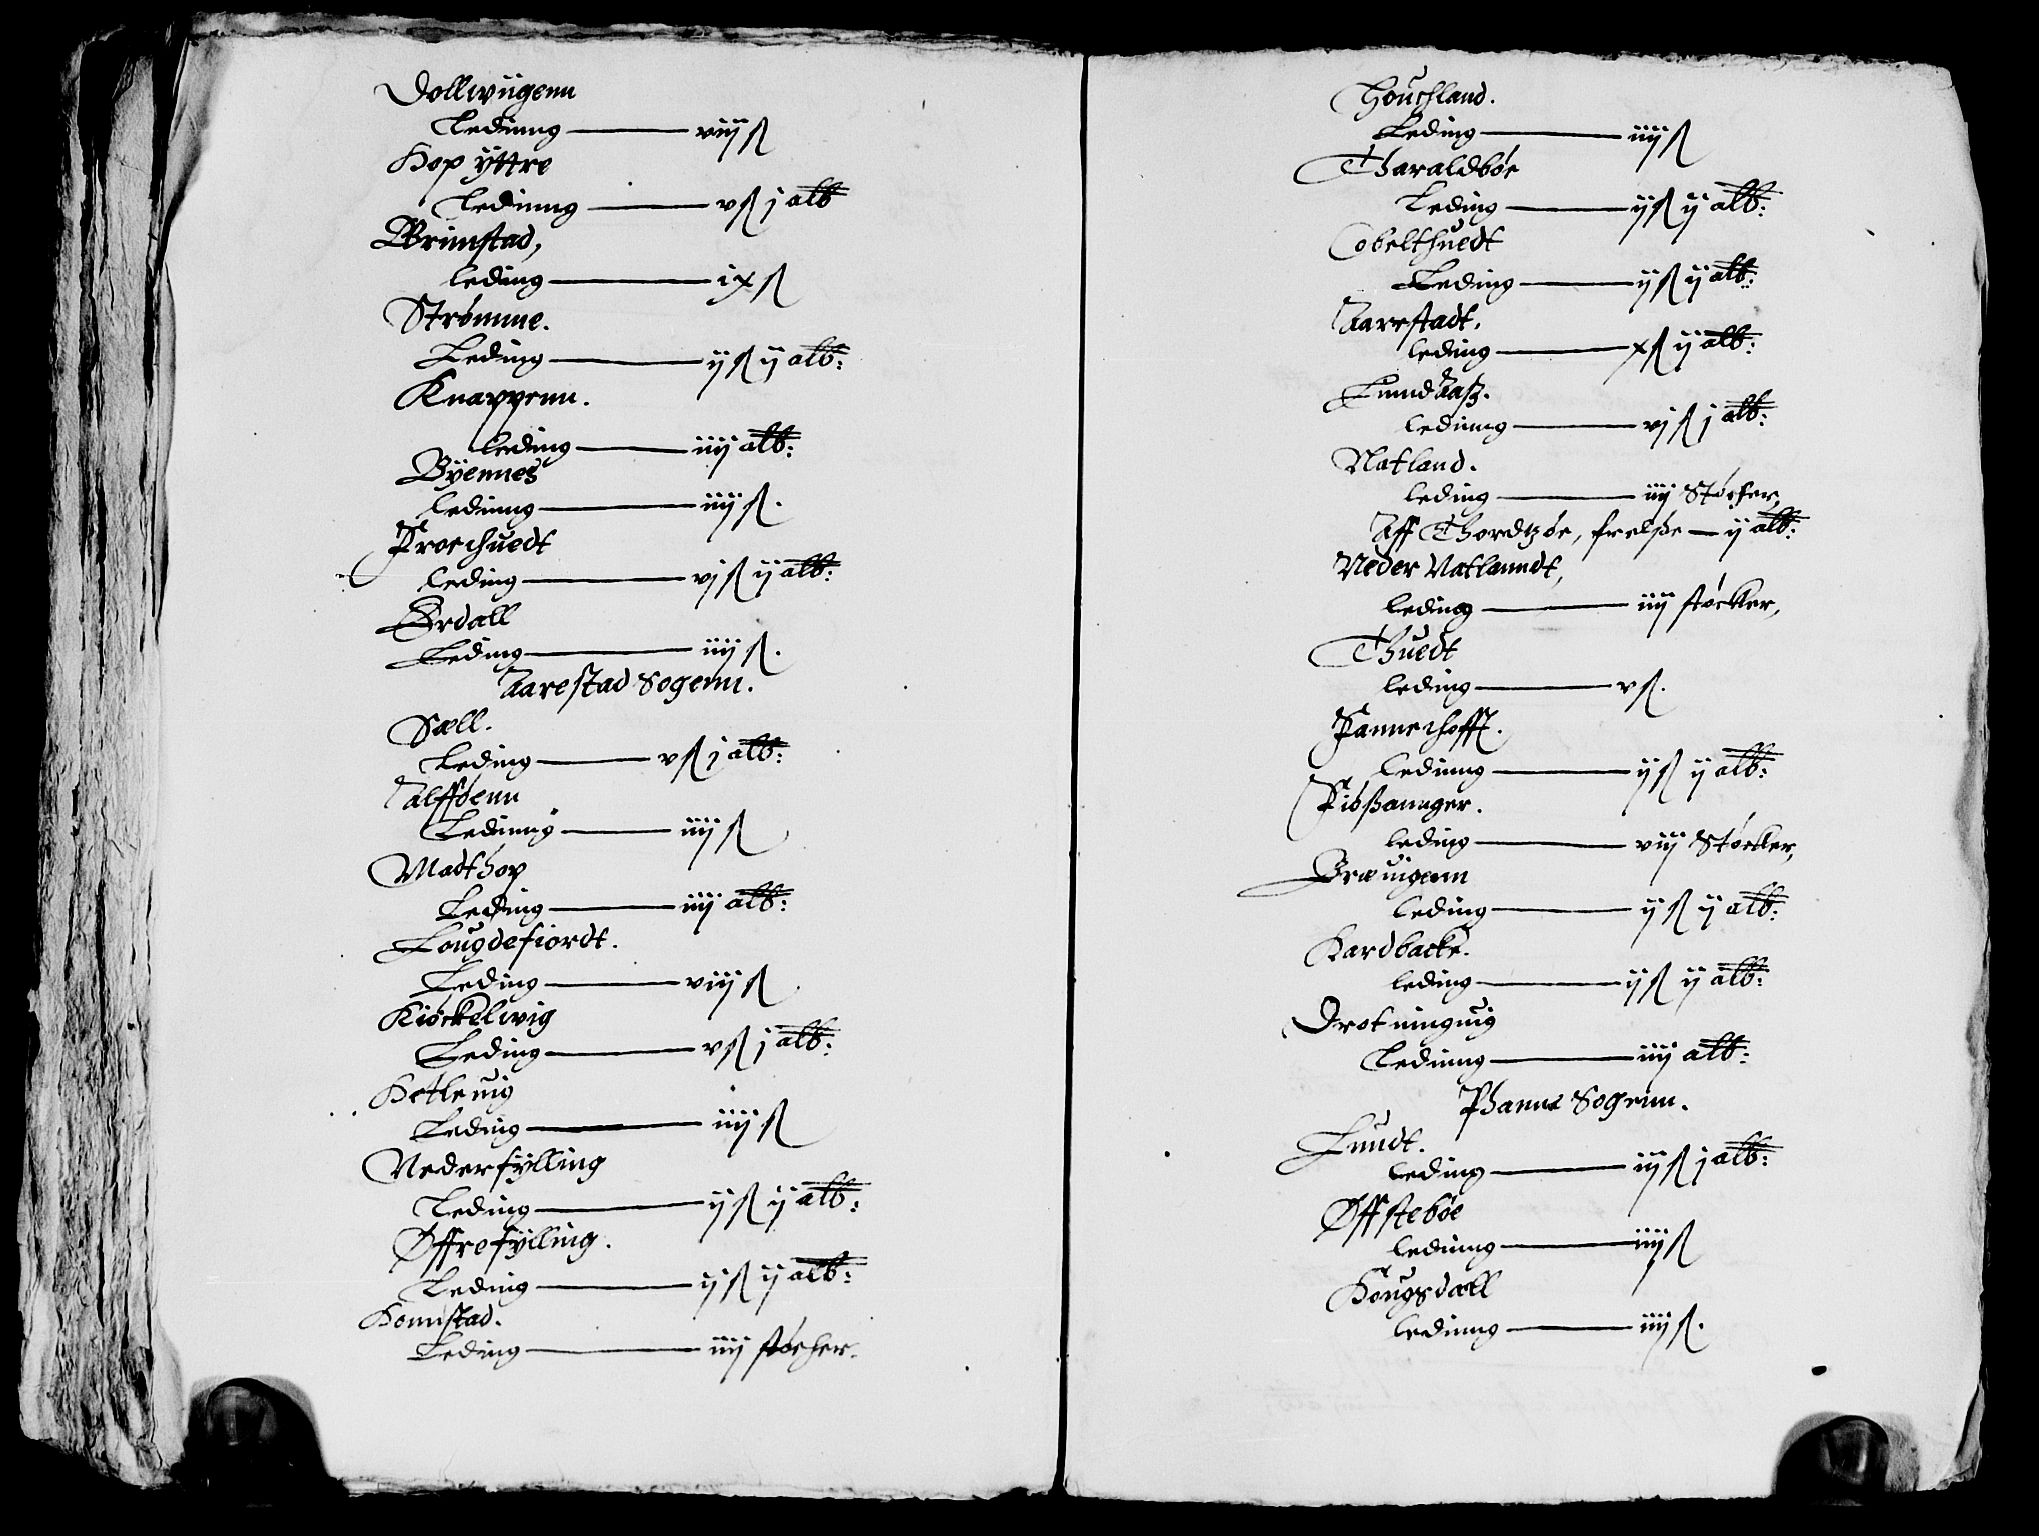 Dollwiigenn
Ledinng — viij ß
Hop ÿttre
Ledinng — v ß j alb
Grimstad,
leding — ix ß
Strømme.
Leding — ij ß ij alb:
Knappenn.
leding — iiij alb:
Bÿennes
ledinng — iiij ß.
Proechuedt
leding — vj ß ij alb:
Ørdall
Leding — iiij ß.
Aarestad Sogenn.
Sæll.
Leding — v ß j alb:
Alfføenn
Ledinng — iiij ß
Madthop
Leding — iiij alb:
Lougdefiordt.
Leding — viij ß
Kiøckelwig
Leding — v ß j alb:
Hetleuig
Leding — iiij ß
Nederfÿlling
Leding — ij ß ij alb:
Øffrefÿlling.
Leding — ij ß ij alb:
Hornstad.
Leding — iiij støcher.
Houchland.
Leding — iiij ß
Tharaldbøe
Leding — ij ß ij alb:
Cobelthuedt
Leding — ij ß ij alb:
Aarestadt.
leding — x ß ij alb:
Lund Aaß.
ledinng — vj ß j alb:
Natland.
leding — iiij Støcher,
Aff Thordtzøe, frelße — ij alb:
Neder Natlanndt,
leding — iiij støcker,
Thuedt
leding — v ß.
Pannechofft.
ledinng — ij ß ij alb:
Fiößannger.
leding — viij Støcker,
Bræuigenn
leding — ij ß ij alb:
Hardbacke.
leding — ij ß ij alb:
Drotninguig
Ledinng — iiij alb:
Phanne Sogenn.
Lundt.
leding — iij ß j alb:
Øffstebøe
ledinng — iiij ß
Hougsdall
ledinng — iiij ß.